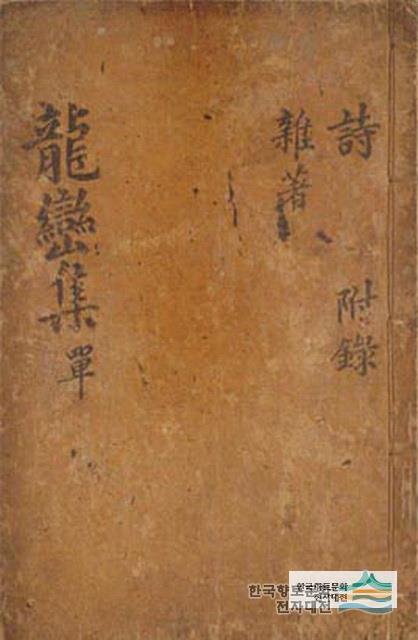 詩 附錄
雜著
龍巒集 單
한국향토문화
전자대전
한국향토문화
전자대전